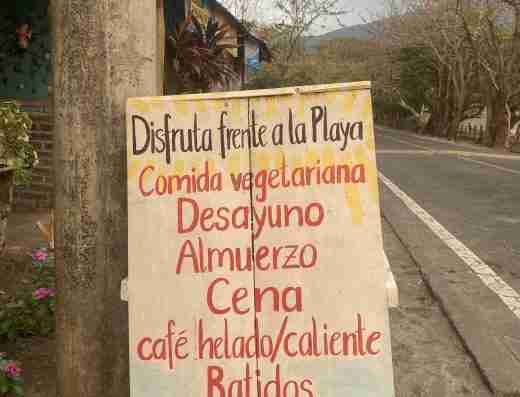 Disfruta frente a la Playa
Comida vegetariana
Desayuno
Almuerzo
Cena
café helado/caliente
Batidos